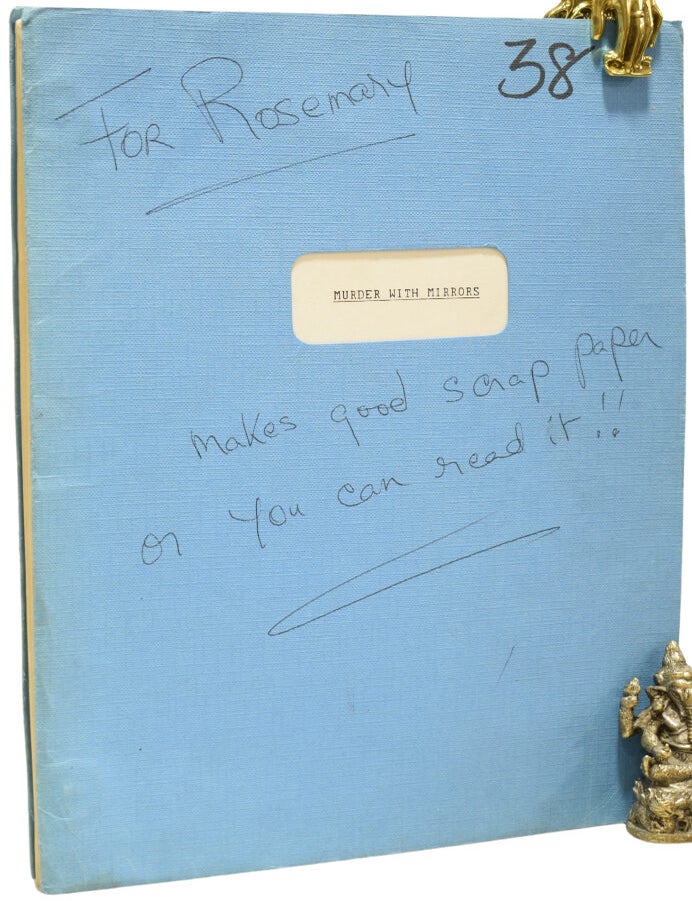 38
For Rosemary
MURDER WITH MIRRORS
makes good scrap paper
or you can read it !!